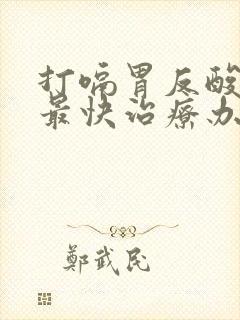 打嗝胃反酸
最快治療办
鄭武民